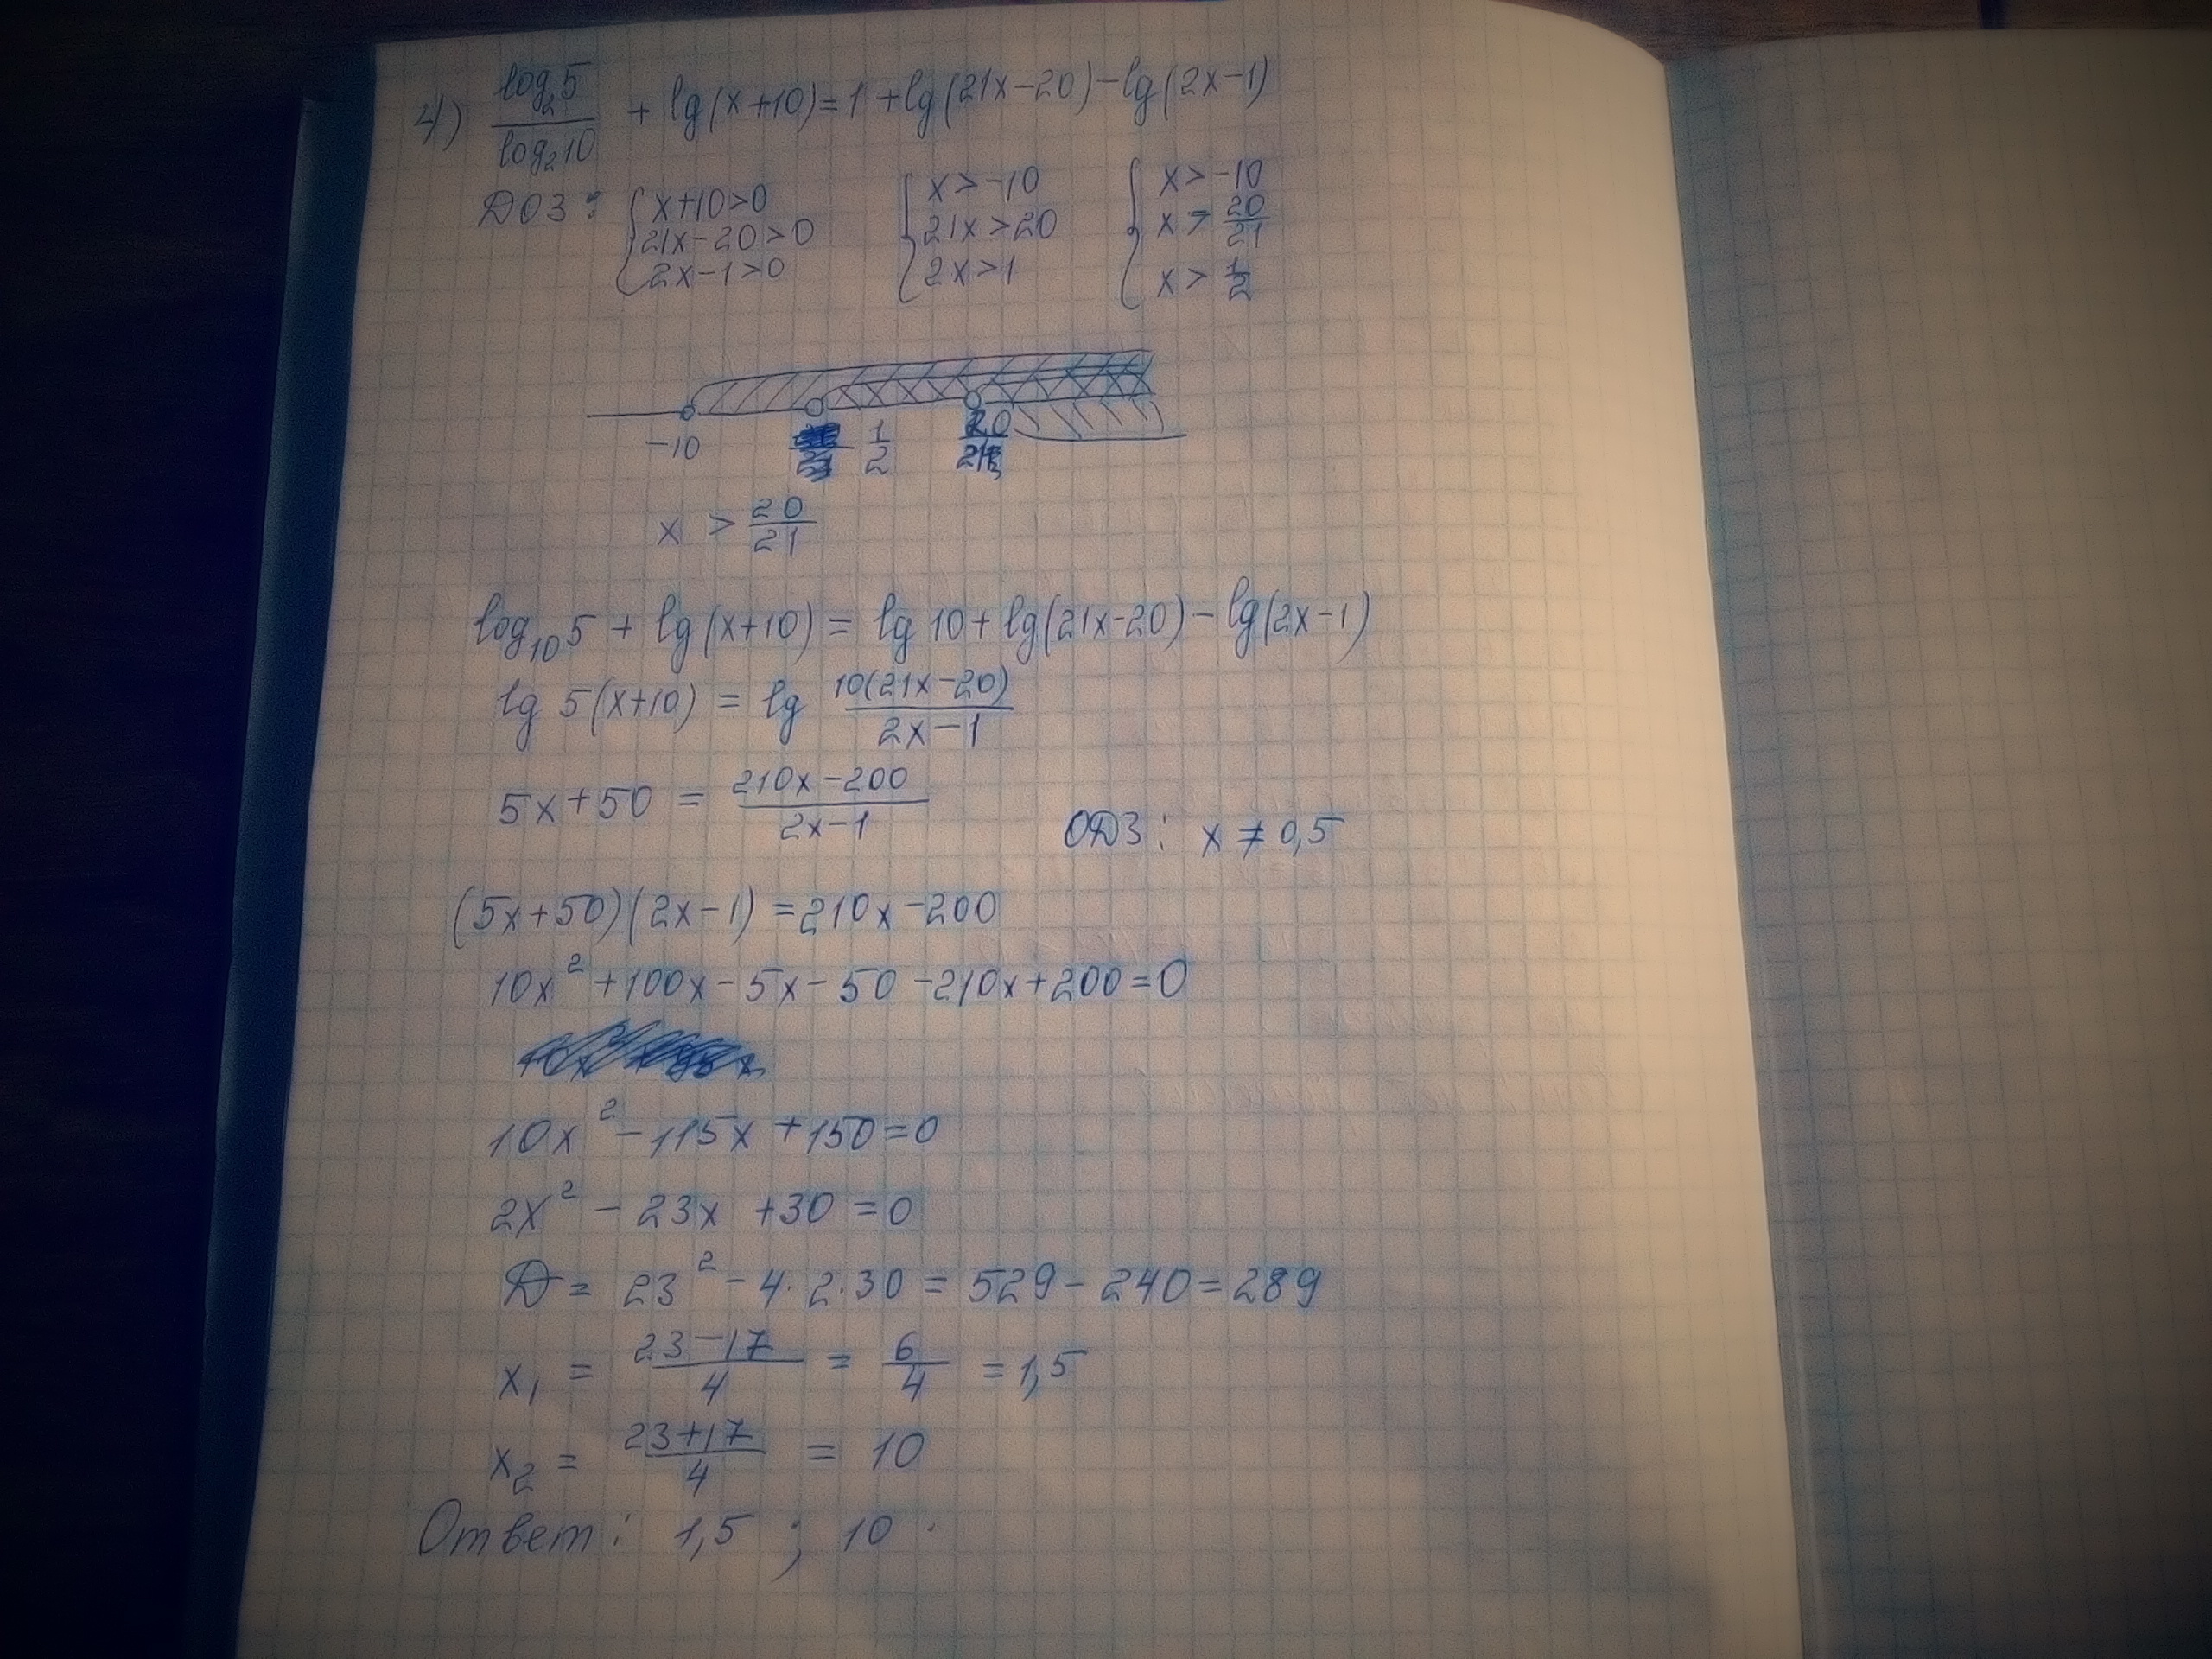 4) log₂5 / log₂10 + lg(x+10) = 1 + lg(21x-20) - lg(2x-1)
ДОЗ: { x+10>0 { x>-10 { x>-10
21x-20>0 21x>20 x > 20/21
2x-1>0 2x>1 x > 1/2
-10 1/2 20/21
x > 20/21
log₁₀5 + lg(x+10) = lg 10 + lg(21x-20) - lg(2x-1)
lg 5(x+10) = lg 10(21x-20) / 2x-1
5x+50 = 210x-200 / 2x-1
ОДЗ: x ≠ 0,5
(5x+50)(2x-1) = 210x-200
10x² + 100x - 5x - 50 - 210x + 200 = 0
10x² - 115x + 150 = 0
2x² - 23x + 30 = 0
D = 23² - 4·2·30 = 529 - 240 = 289
x₁ = 23-17 / 4 = 6/4 = 1,5
x₂ = 23+17 / 4 = 10
Ответ: 1,5 ; 10.